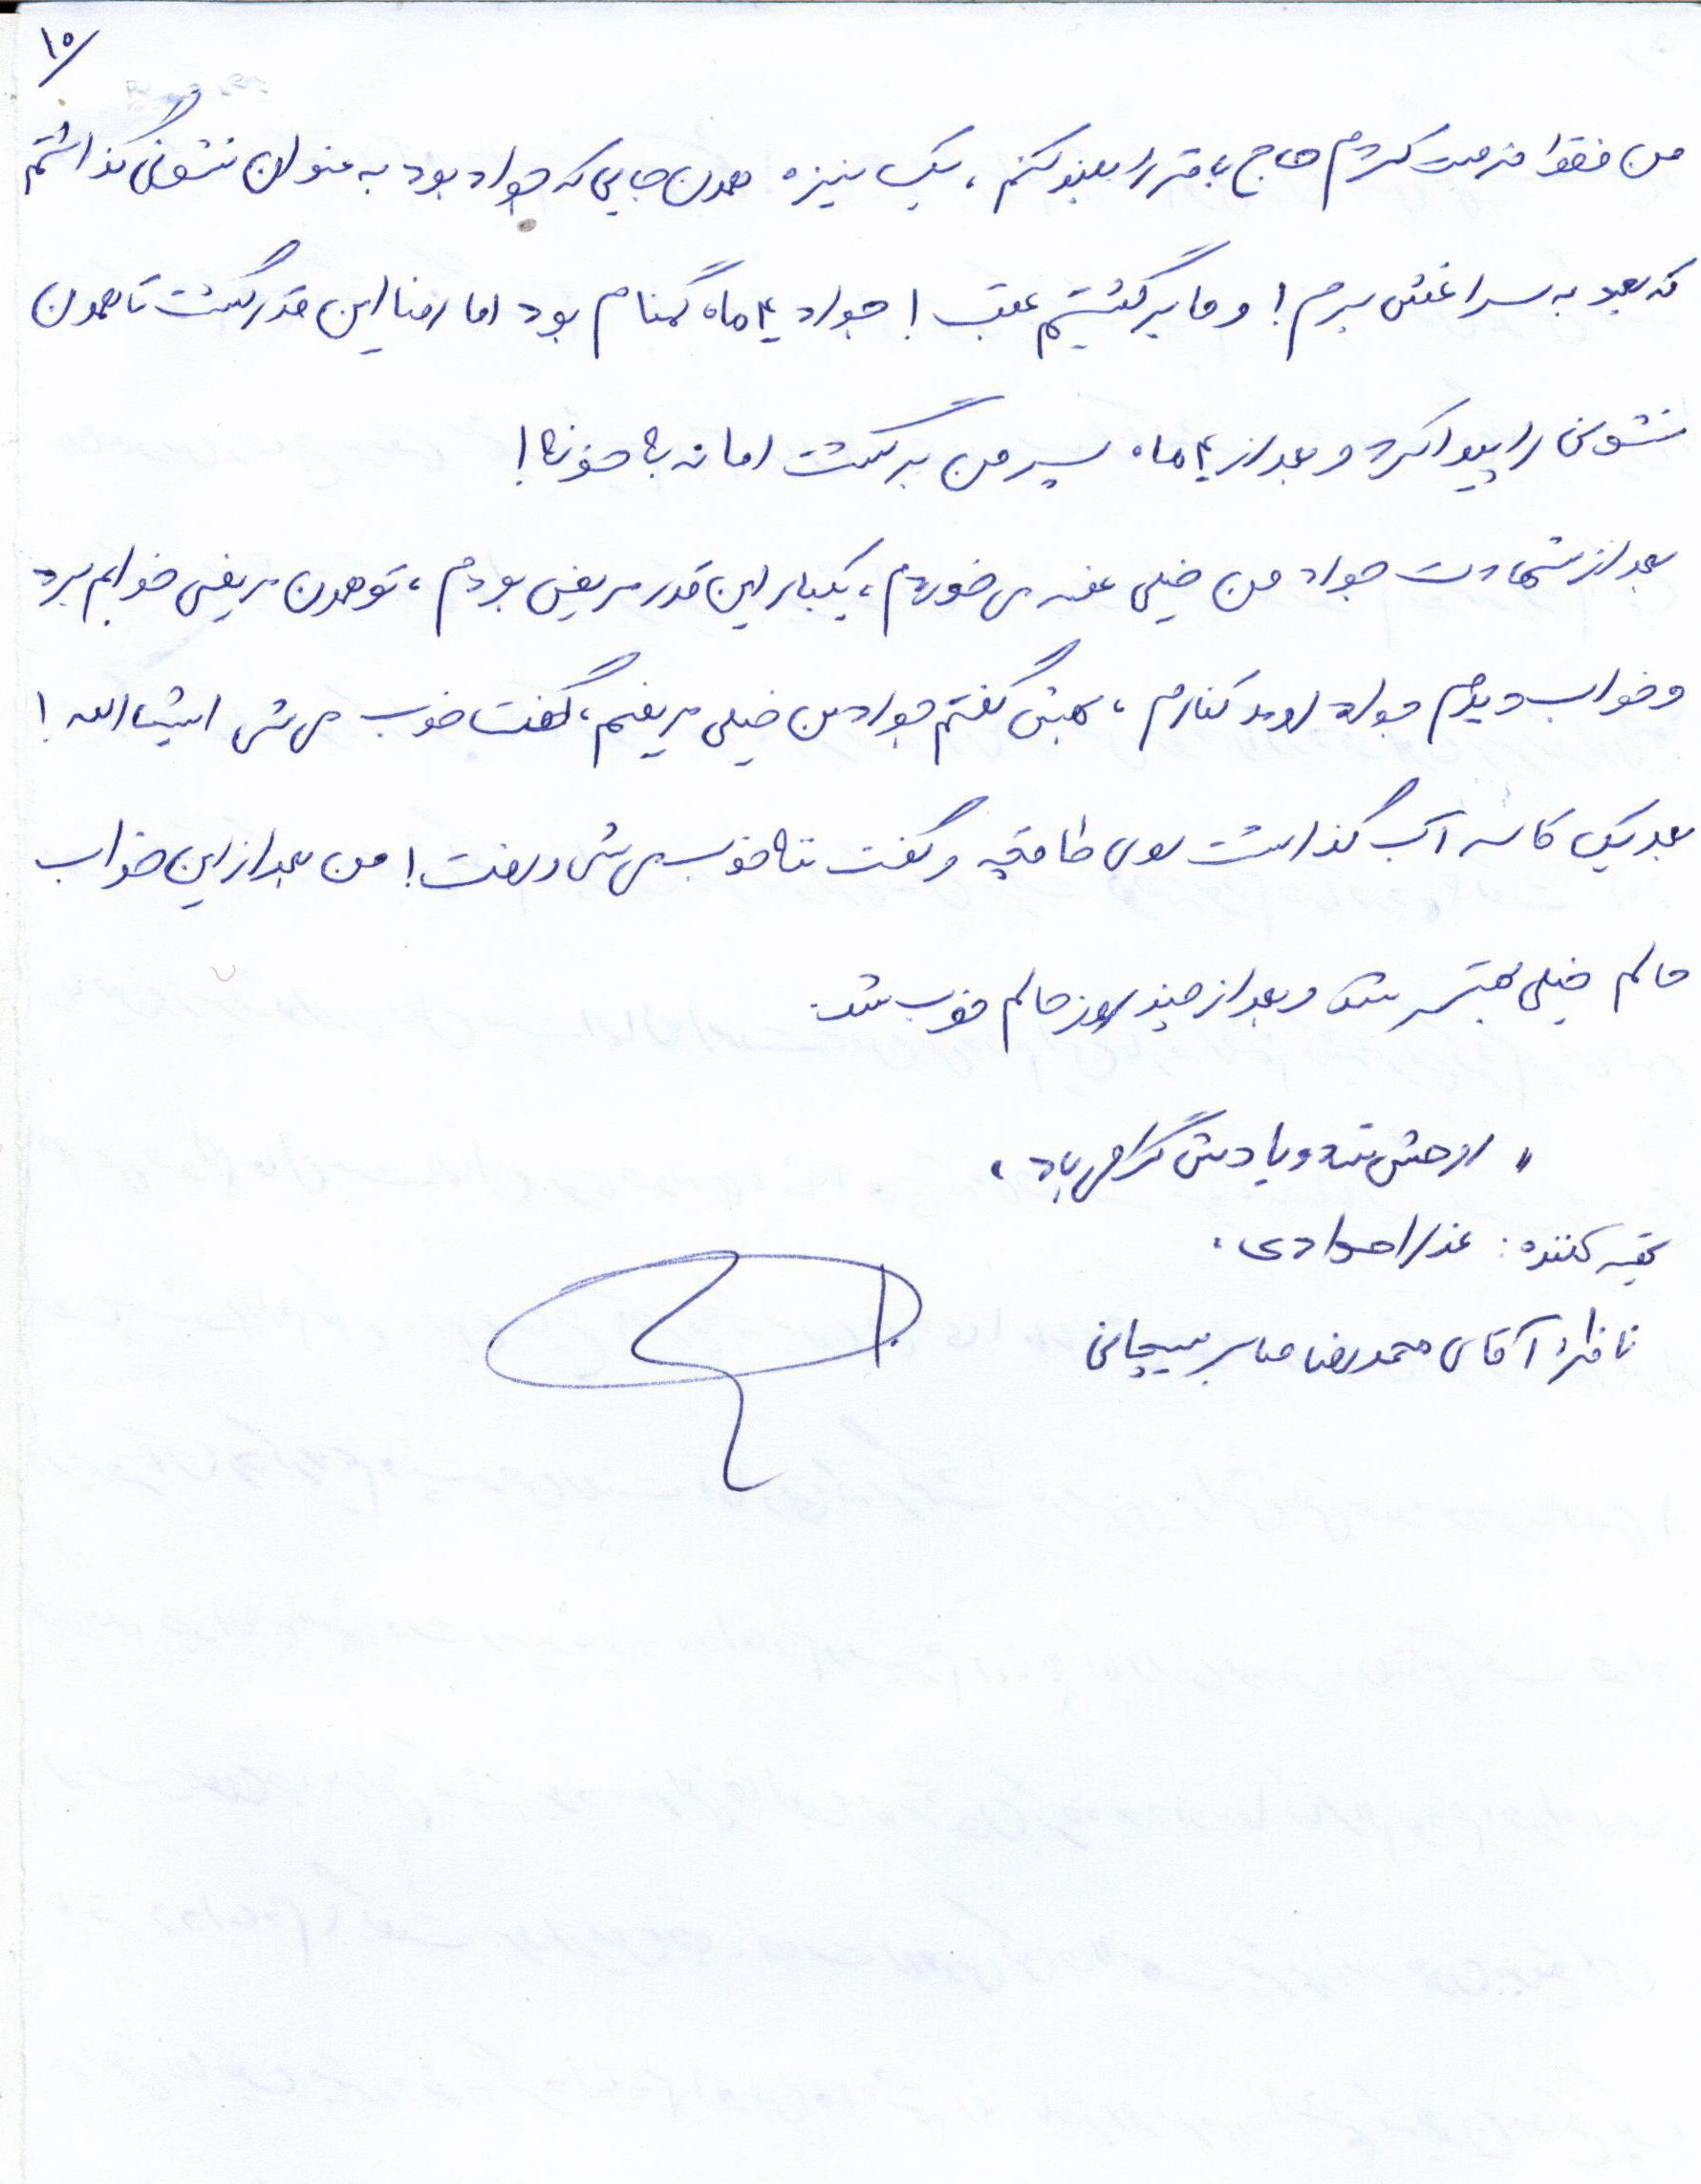 ۱۵/
من فقط فرصت کردم حاج باقر را بلند کنم، یک نیزه همون جایی که جواد بود به عنوان نشونی گذاشتم
که بعد به سراغش برم! و ما برگشتیم عقب! جواد ۴ ماه گمنام بود اما رضا این قدر گشت تا همون
نشونی را پیدا کرد و بعد از ۴ ماه پسر من برگشت اما نه با خونها!
بعد از شهادت جواد من خیلی غصه می خوردم، یکبار این قدر مریض بودم، تو همون مریضی خوابم برد
و خواب دیدم جواد اومد کنارم، بهش گفتم جواد من خیلی مریضم، گفت خوب می شی انشاالله!
بعد یک کاسه آب گذاشت روی طاقچه و گفت ننه خوب می شی و رفت! من بعد از این خواب
حالم خیلی بهتر شد و بعد از چند روز حالم خوب شد.
"روحش شاد و یادش گرامی باد"
تهیه کننده: عذرا جوادی.
ناظر: آقای محمدرضا صابر سیچانی